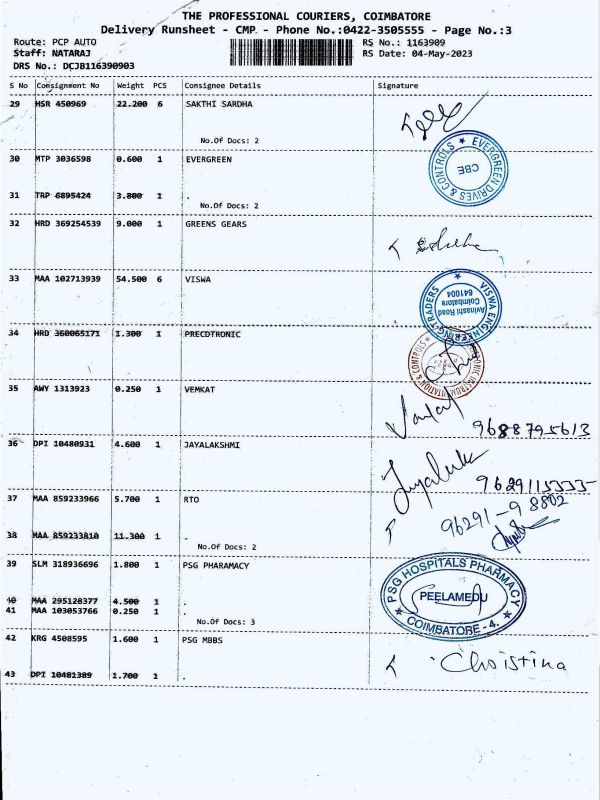 THE PROFESSIONAL COURIERS, COIMBATORE
Delivery Runsheet - CMP - Phone No.:0422-3505555 - Page No.:3
Route: PCP AUTO RS No.: 1163909
Staff: NATARAJ RS Date: 04-May-2023
DRS No.: DCJB116390903
S No Consignment No Weight PCS Consignee Details Signature
29 HSR 450969 22.200 6 SAKTHI SARDHA
No.Of Docs: 2
30 MTP 3036598 0.600 1 EVERGREEN
EVERGREEN DRIVES & CONTROLS
CBE
31 TRP 6895424 3.800 1 .
No.Of Docs: 2
32 HRD 369254539 9.000 1 GREENS GEARS
33 MAA 102713939 54.500 6 VISWA
VISWA ENGINEERING TRADERS
Avinashi Road
Coimbatore
641004
34 HRD 360065171 1.300 1 PRECDTRONIC
35 AWY 1313923 0.250 1 VEMKAT
9688795613
36 DPI 10480931 4.600 1 JAYALAKSHMI
9629115335
37 MAA 859233966 5.700 1 RTO
96291-98802
38 MAA 859233810 11.300 1 .
No.Of Docs: 2
39 SLM 318936696 1.800 1 PSG PHARAMACY
PSG HOSPITALS PHARMACY
PEELAMEDU
COIMBATORE - 4.
40 MAA 295128377 4.500 1 .
41 MAA 103053766 0.250 1 .
No.Of Docs: 3
42 KRG 4508595 1.600 1 PSG MBBS
Christina
43 DPI 10481389 1.700 1 .